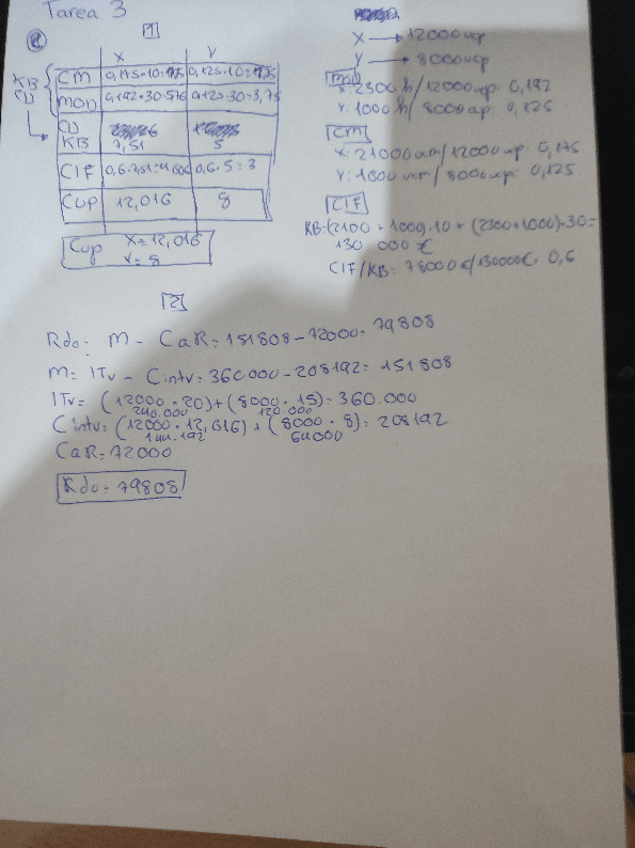 Tarea 3
1
X Y
KB CD
CM 0,175·10=1,75 0,125·10=1,25
MOD 0,192·30=5,76 0,125·30=3,75
CD
KB 7,51 5
CIF 0,6·7,51=4,506 0,6·5=3
Cup 12,016 8
Cup X=12,016
Y=8
X → 12000 up
Y → 8000 up
MOD
X: 2300 h/12000 up: 0,192
Y: 1000 h/8000 up: 0,125
CM
X: 21000 um/12000 up: 0,175
Y: 1000 um/8000 up: 0,125
CIF
KB: (2100+1000)·10+(2300+1000)·30=
130 000 €
CIF/KB: 78000€/130000€= 0,6
2
Rdo= M - CaR= 151808-72000= 79808
M= ITv - Cintv= 360000-208192= 151808
ITv= (12000·20)+(8000·15)= 360.000
240.000 120.000
Cintv= (12000·12,016)+(8000·8)= 208192
144.192 64000
CaR= 72000
Rdo= 79808